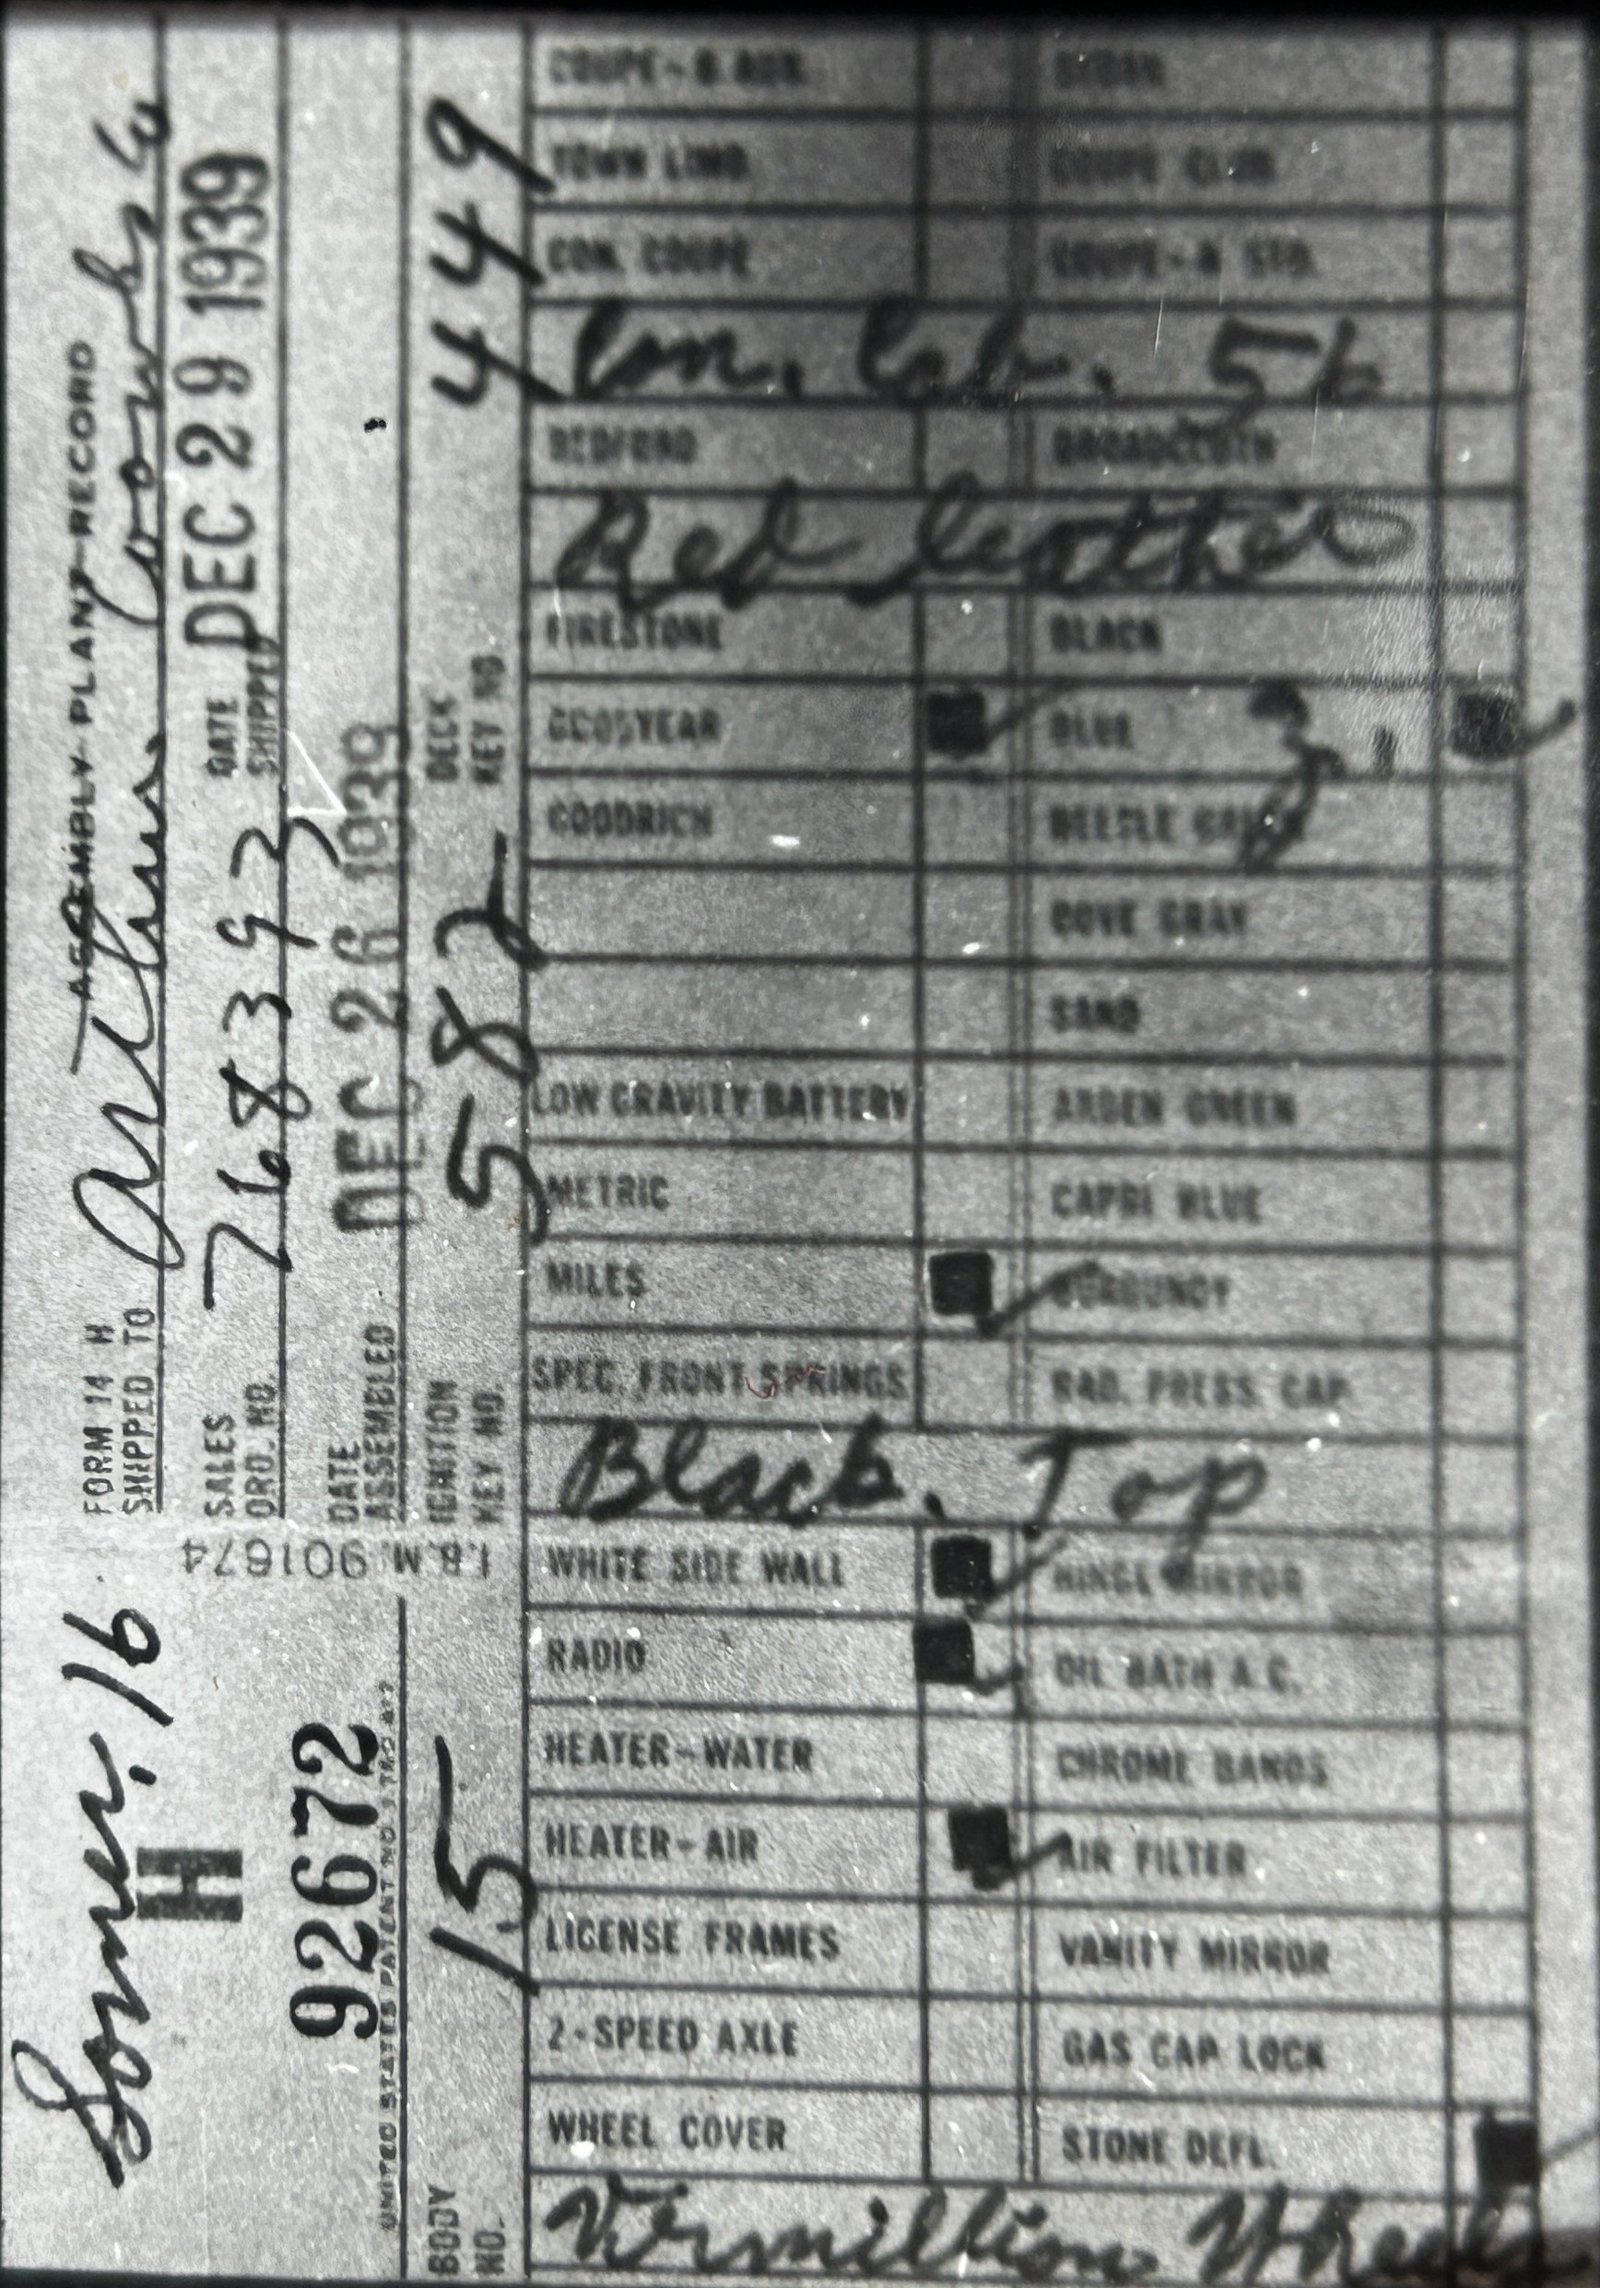 Somer, 16
H
92672
UNITED STATES PATENT NO.
I.B.M. 901674
FORM 14 H ASSEMBLY PLANT RECORD
SHIPPED TO Arthur
SALES ORD. NO. 768393
DATE SHIPPED DEC 29 1939
DATE ASSEMBLED DEC 26 1939
BODY NO. 15
IGNITION KEY NO. 582
DECK KEY NO. 449
TOWN LIMO. COUPE CLUB
CON. COUPE COUPE-4 STD.
Con. Cab. 56
BEDFORD BROADCLOTH
Red leather
FIRESTONE BLACK
GOODYEAR BLUE
GOODRICH
COVE GRAY
SAND
LOW GRAVITY BATTERY ARDEN GREEN
METRIC CAPRI BLUE
MILES BURGUNDY
SPEC. FRONT SPRINGS RAD. PRESS. CAP
Black. Top
WHITE SIDE WALL HINGE MIRROR
RADIO OIL BATH A.C.
HEATER-WATER CHROME BANDS
HEATER-AIR AIR FILTER
LICENSE FRAMES VANITY MIRROR
2-SPEED AXLE GAS CAP LOCK
WHEEL COVER STONE DEFL.
Vermillion Wheels